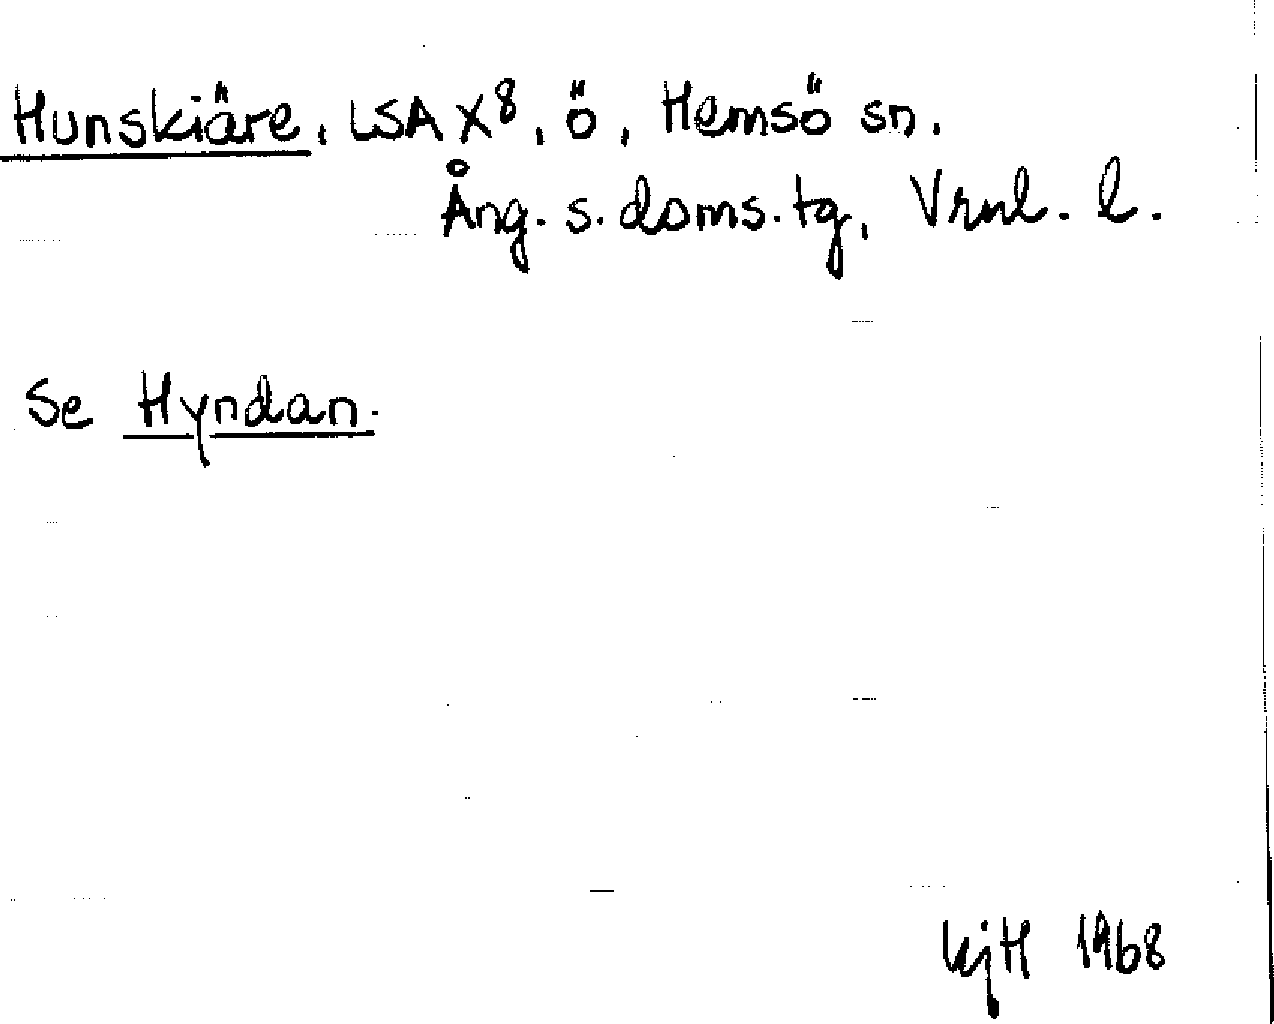 Hunskiäre, LSA X8, ö, Hemsö sn.
Ång. s. doms. tg, Vrnl. l.
Se Hyndan.
KjH 1968